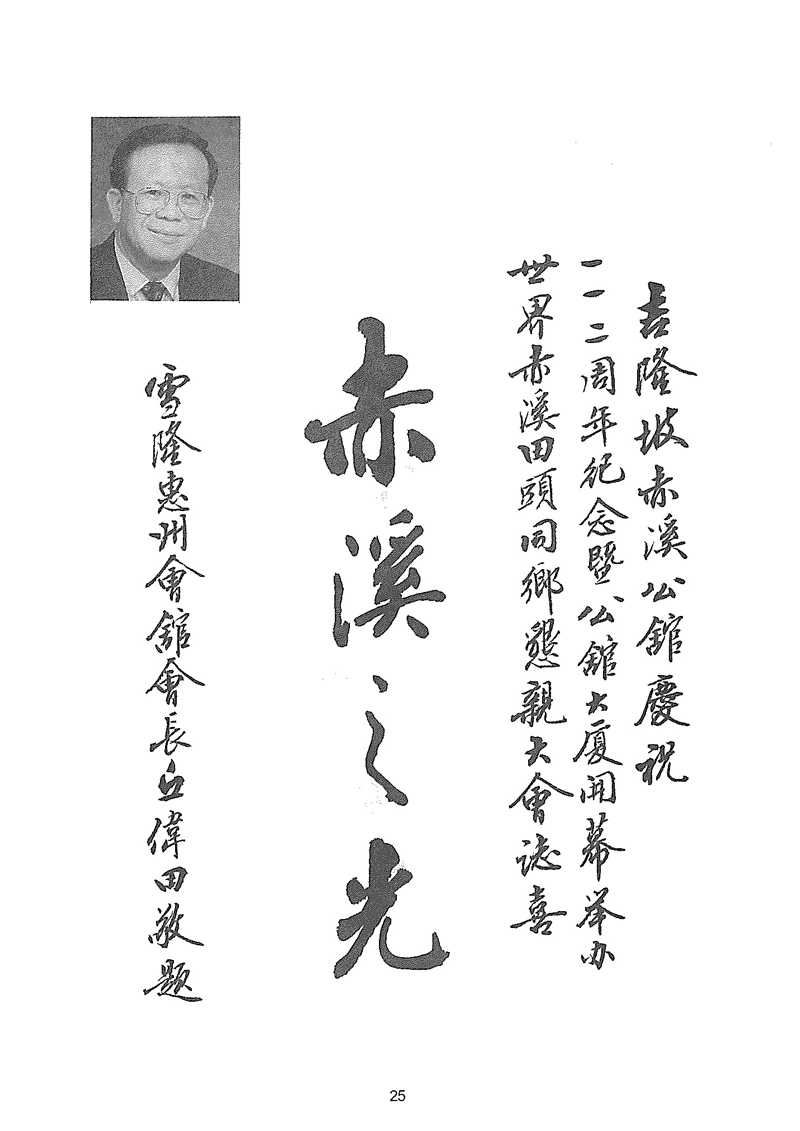 吉隆坡赤溪公舘慶祝
一一二周年纪念暨公舘大厦開幕举办
世界赤溪田頭同鄉懇親大會誌喜
赤溪之光
雪隆惠州會舘會長丘偉田敬題
25